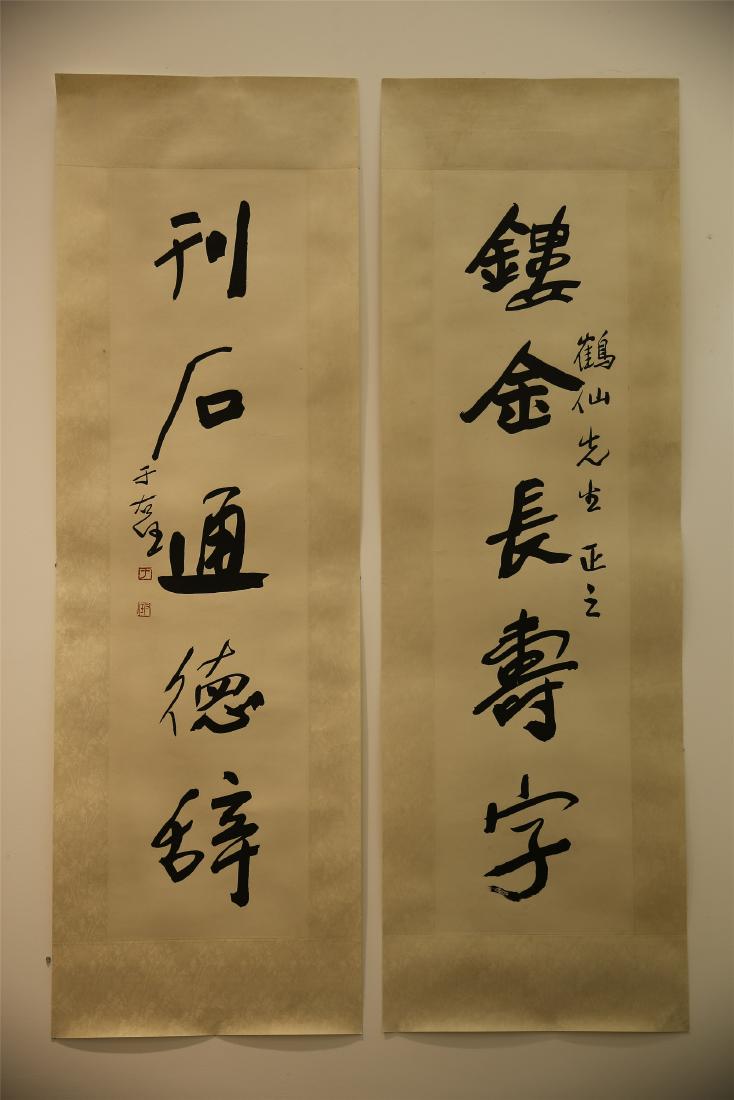 鏤金長壽字
鶴仙先生正之
刊石通德辞
于右任